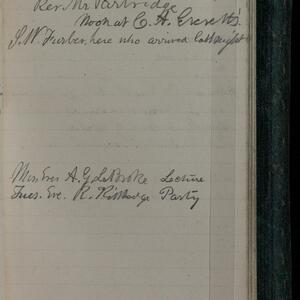 Rev Mr Partridge
Noon at C. H. Everett's.
J. W. Furber, here who arrived last night
Mon Eve A. G. LeBroke Lecture
Tues. Eve. R. Kittredge Party